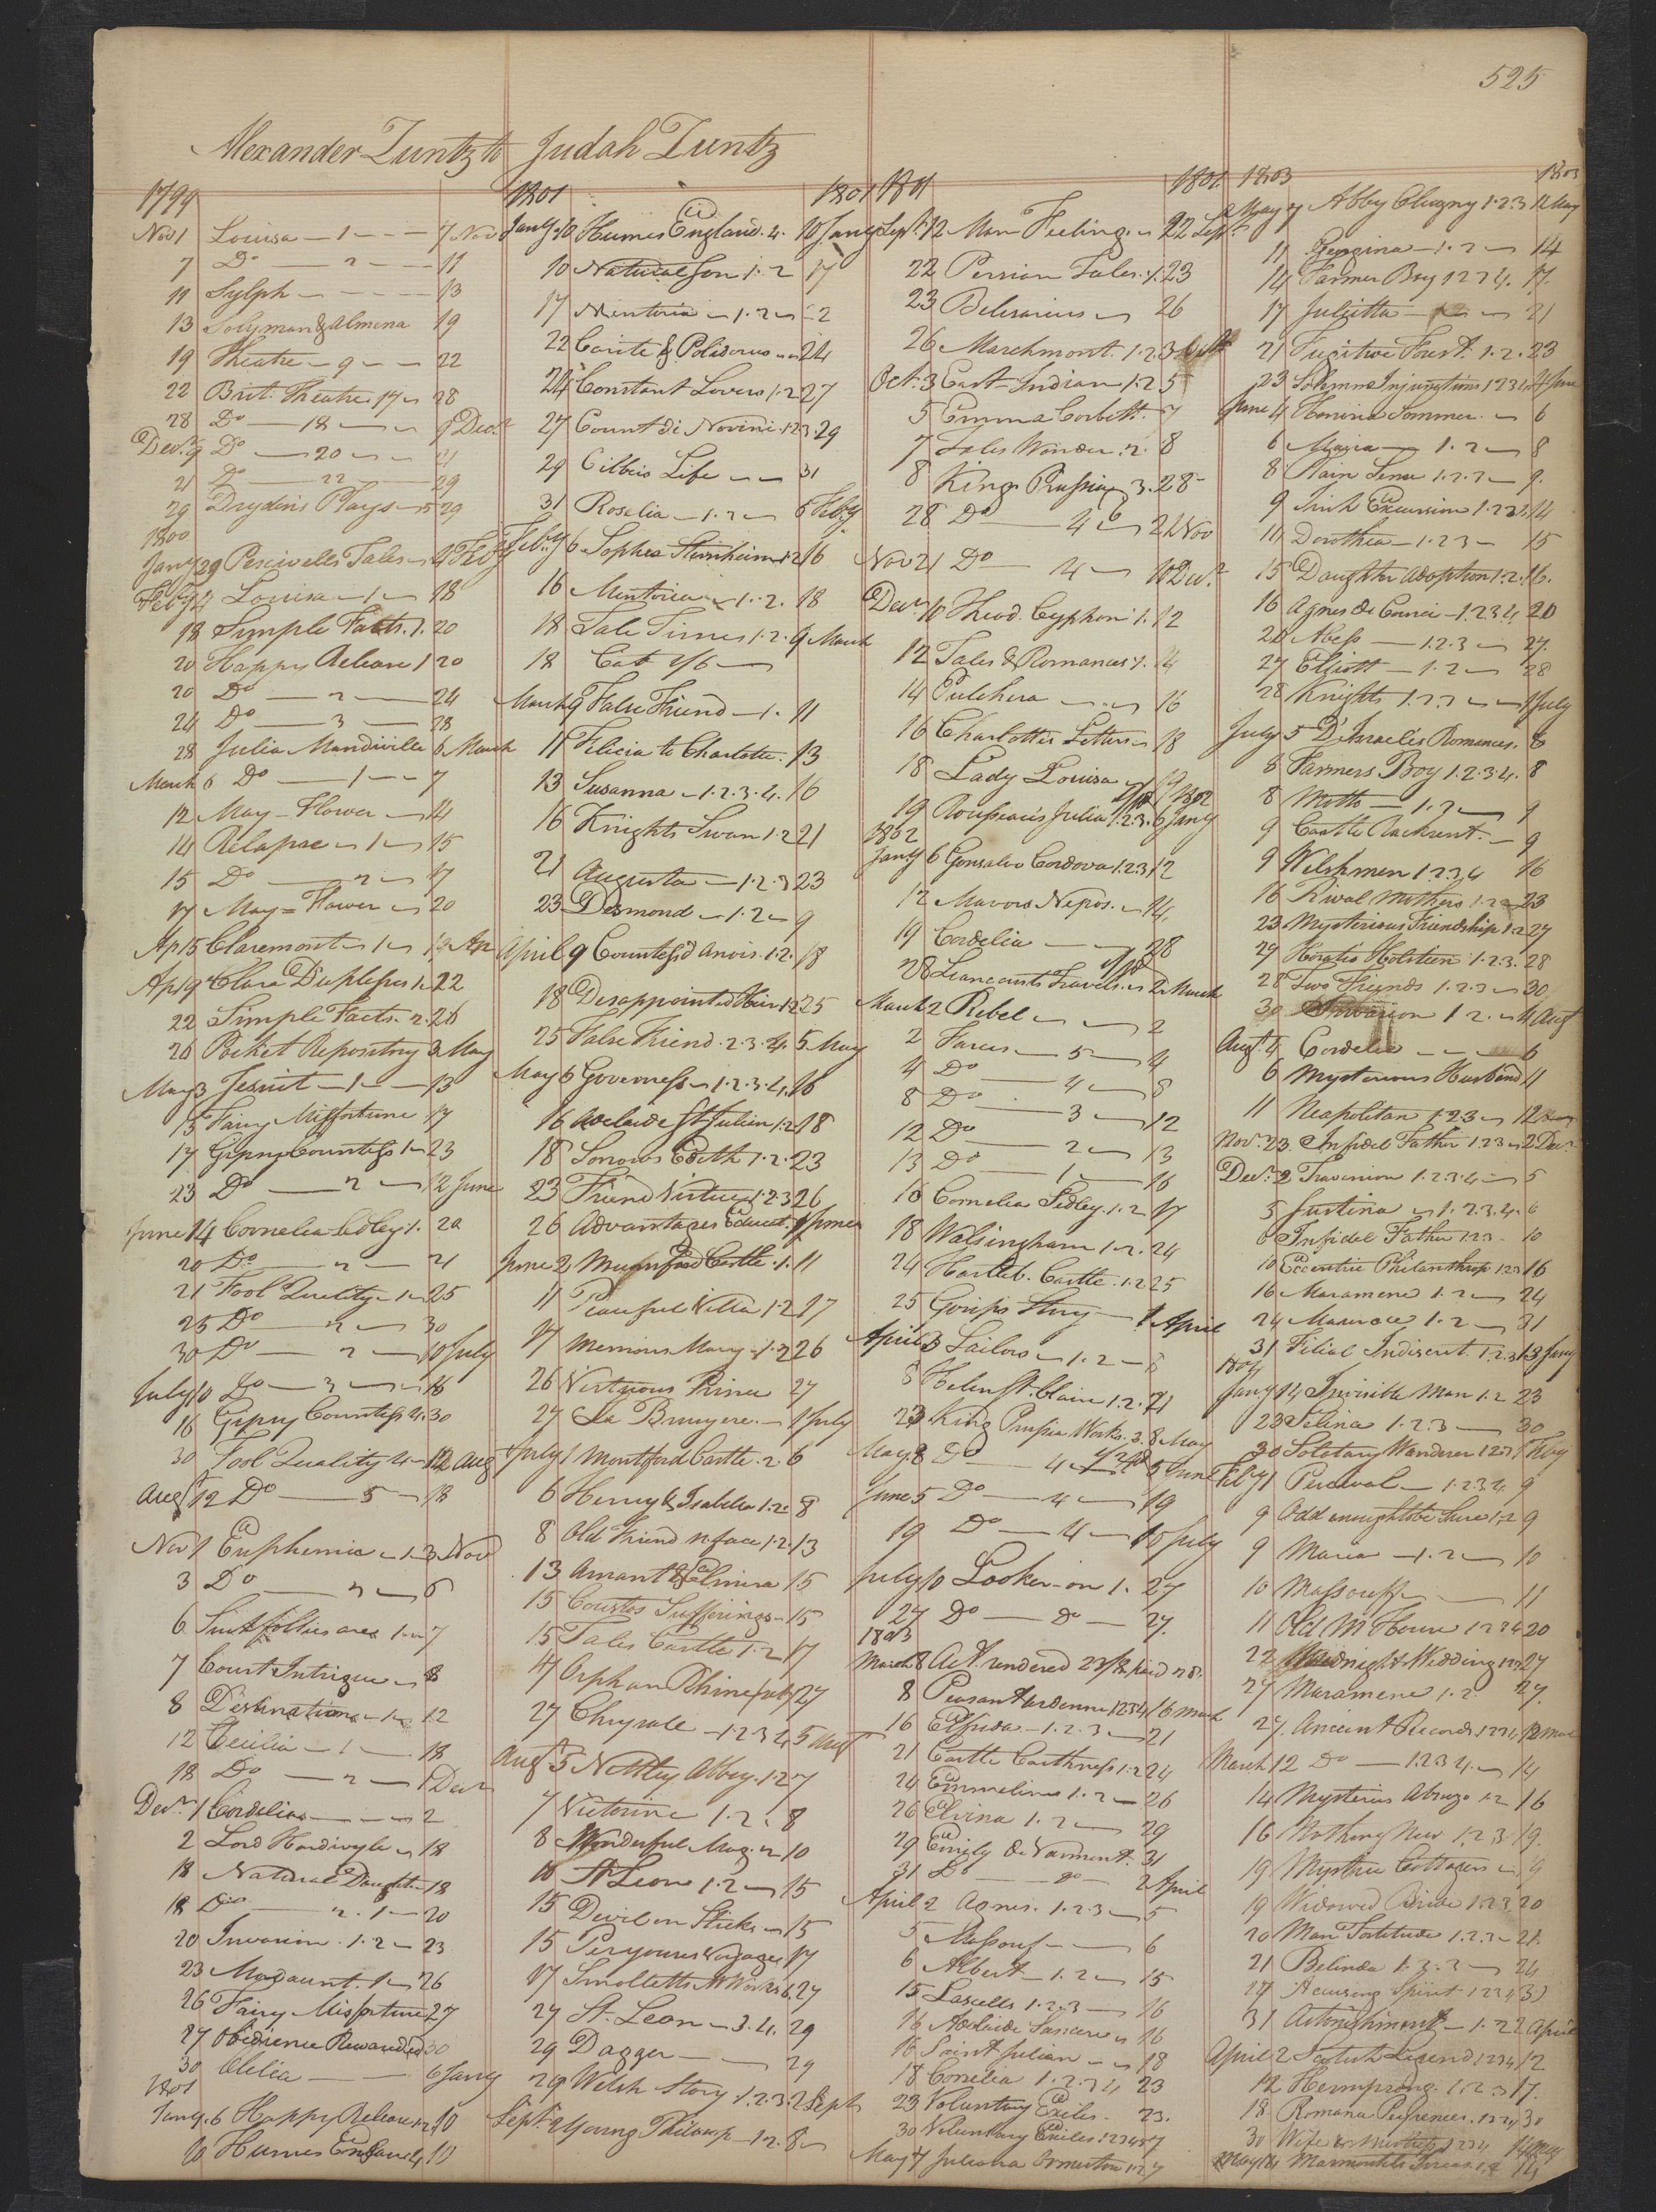 525
Alexander Zuntz to Judah Zuntz
1799
Nov 1 Louisa — 1 — 7 Nov
7 Do — 2 — 11
11 Sylph — 13
13 Solyman & Almena 19
19 Theatre — 9 — 22
22 Brit. Theatre 17 28
28 Do — 18 — 9 Decr
Decr 9 Do — 20 — 21
21 Do — 22 — 29
29 Drydens Plays — 5 29
1800
Jany 29 Percivelles Tales — 4 Feby
Feby 4 Louisa — 1 — 18
18 Simple Facts. 1. 20
20 Happy Release 1 20
20 Do — 2 — 24
24 Do — 3 — 28
28 Julia Mandiville 6 March
March 6 Do — 1 — 7
12 May-Flower — 14
14 Relapse — 1 — 15
15 Do — 2 — 17
17 May=Flower — 20
Ap 15 Claremont — 1 — 19 Ap
Ap 19 Clara Duplessis 1. 22
22 Simple Facts. 2. 26
26 Pocket Repository 3 May
May 3 Jesuit — 1 — 13
13 Fairy Missfortune 17
17 Gipsy Countess 1 — 23
23 Do — 2 — 12 June
June 14 Cornelia Sedley. 1. 20
20 Do — 2 — 21
21 Fool Quality — 1 — 25
25 Do — 2 — 30
30 Do — 2 — 10 July
July 10 Do — 3 — 16
16 Gipsy Countess 4. 30
30 Fool Quality 4 — 12 Aug
Augt 12 Do — 5 — 18
Nov 1 Euphemia — 1 — 3 Nov
3 Do — 2 — 6
6 7
7 Court Intrigue — 8
8 Destination — 1 — 12
12 Cecilia — 1 — 18
18 Do — 2 — 1 Decr
Decr 1 Cordelia — 2
2 Lord Hardivyle — 18
18 Natural Daughter 18
18 Do 2. 1 — 20
20 Invasion. 1. 2 — 23
23 1 — 26
26 Fairy Misfortune 27
27 Obedience Rewarded 30
30 Clelia — 6 Jany
1801
Jany. 6 Happy Release 1.2. 10
10 Humes England 4 10
1801 1801
Jany. 10 Humes England. 4. 10 Jany
10 Natural Son 1. 2 17
17 Mentoria — 1. 2 22
22 Carite & Polidorus 24
24 Constant Lovers 1. 2 27
27 Count di Novini. 1 2 3. 29
29 Cibbers Life — 31
31 Rosalia — 1. 2 — 6 Feby
Feby 6 Sophia Sternheim 1 2 16
16 Mentoria — 1. 2. 18
18 Tale Times 1. 2. 9 March
18 Cat 2/6 —
March 9 False Friend — 1. 11
11 Felicia to Charlotte. 13
13 Susanna — 1. 2. 3. 4. 16
16 Knights Swan 1. 2 21
21 Augusta — 1. 2. 3 23
23 Desmond — 1. 2 — 9
April 9 Countess d Anois. 1. 2. 18
18 Disappointed Heir 1. 2 25
25 False Friend. 2. 3. 4. 5 May
May 6 Governess — 1. 2. 3. 4. 16
16 Adelaide St Julien 1. 2 18
18 Sorrows Edith 1. 2. 23
23 Friend Virtue 1. 2 3 26
26 Advantages Educat. 1 June
June 2 Mumford Castle. 1. 11
11 Peaceful Villa 1. 2 17
17 Memoirs Mary — 1. 2 26
26 Virtuous Prince 27
27 La Bruyere. — 1 July
July 1 Montford Castle. 2. 6
6 Henry & Isabella 1. 2. 8
8 Old Friend n. face 1. 2. 13
13 Amant & Elmira 15
15 Coustos Sufferings 15
15 Tales Castle 1. 2 17
17 Orphan Rhine 27
27 Chrysale — 1. 2 3 4. 5 Augt
Augt 5 Nettley Abbey. 1. 2 7
7 Victorine 1. 2. 8
8 Wonderful Mag. 2 10
10 St Leon 1. 2 — 15
15 Devil on Sticks — 15
15 Perouses Voyages 17
17 Smolletts Works 6. 27
27 St. Leon — 3. 4. 29
29 Dagger — 29
29 Welsh Story. 1. 2. 3. 2 Sept
Sept. 2 Young Philosop — 1. 2. 8
1801 1801
Sept. 12 Man Feeling. — 22 Sept.
22 Persian Tales. 1. 23
23 Belisarius — 26
26 Marchmont. 1. 2. 3. Oct
Oct. 3 East-Indian 1. 2 5
5 Emma Corbett. — 7
7 Tales Wonder. 2. 8
8 King Prussia 3. 28
28 Do — 4 — 21 Nov
Nov 21 Do — 4 — 10 Decr
Decr 10 Theod. Cyphon 1. 12
12 Tales & Romances 1. 14
14 Pulchera — 16
16 Charlottes Letters 18
18 Lady Louisa 19
19 Rousseaus Julia 1. 2. 3. 6 Jany
1802
Jany 6 Gonsalvo Cordova 1. 2. 3 12
12 Mavors Nepos. — 14
19 Cordelia — 28
28 Liancourts Travels. 2 March
March 2 Rebel — 2
2 Farces — 5 — 4
4 Do — 4 — 8
8 Do — 3 — 12
12 Do — 2 — 13
13 Do — 1 — 16
16 Cornelia Sedley. 1. 2 17
18 Walsingham 1. 2. 24
24 Hartleb. Castle. 1. 2 25
25 Story — 1 April
April 3 Sailors — 1. 2 — 8
8 Helen St. Claire 1. 2. 21
23 King Prussia Works. 3. 8 May
May 8 Do — 4 — 5 June
June 5 Do — 4 — 19
19 Do — 4 — 10 July
July 10 Looker-on 1. 27
27 Do — Do — 27
1803
March 8 Act. rendered
8 Peasant Ardenne 1 2 3 4 16 March
16 Elfrida — 1. 2. 3 — 21
21 Castle Caithness 1. 2 24
24 Emmeline 1. 2 — 26
26 Elvina 1. 2 — 29
29 Emily De Varmont. 31
31 Do — Do — 2 April
April 2 Agnes. 1. 2. 3 — 5
5 Massouf — 6
6 Albert — 1. 2 — 15
15 Lascells 1. 2. 3 — 16
16 Adelaide Sancere 16
16 Saint Julian — 18
18 Corrélia 1. 2. 3 4 23
23 Voluntary Exiles. 23.
30 Voluntary Exiles. 1 2 3 4 5 7
May 7 Juliana Ormeston 1. 2 7
1803 1803
May 7 Abby Clugny 1. 2. 3 11 May
11 Reggina — 1. 2 — 14
14 Farmer Boy 1 2 3 4. 17
17 Julietta — 21
21 Fugitive Forst. 1. 2. 23
23 Solemn Injunctions 1 2 3 4 4 June
June 4 Henrina Sommer. — 6
6 Maria — 1. 2 — 8
8 Plain Sense 1. 2. 3 — 9.
9 Irish Excursion 1. 2 3 4. 14
14 Dorothea — 1. 2 3 — 15
15 Daughter Adoption 1. 2. 16.
16 Agnes de Courci — 1. 2. 3 4 20
20 Abess — 1. 2. 3 — 27.
27 Elliott — 1. 2 — 28
28 Knights 1. 2. 3 — 1 July
July 5 D'Israelis Romances. 8
8 Farmers Boy 1. 2. 3. 4. 8
8 Motto — 1. 2 — 9
9 Castle Rackrent. — 9
9 Welshmen 1. 2. 3. 4 16
16 Rival Mothers 1. 2 23
23 Mysterious Friendship 1. 2 27
27 Horatio Holstein 1. 2. 3. 28
28 Two Friends 1. 2. 3 — 30
30 Invasion 1 2. 4 Augt
Augt. 4 Cordelia — 6
6 Mysterious Husband 11
11 Neapolitan 1. 2 3 12
Novr. 23 Infidel Father 1. 2 3 2 Decr
Decr. 2 Traversion 1. 2 3. 4 — 5
5 Justina — 1. 2. 3. 4. 6
6 Infidel Father 1. 2 3 10
10 Eccentric Philanthrop. 1. 2 3 16
16 Maramene 1. 2 — 24
24 1. 2 — 31
31 Filial Indiscret. 1. 2. 3 13 Jany
1804
Jany 14 Invisible Man 1. 2 23
23 Selina 1. 2. 3 — 30
30 Solotary Wanderer 1 2 3 1 Feby
Feby 1 Percival — 1. 2 3 4 9
9 Odd enough to be Sure 1. 2 9
9 Maria — 1. 2 — 10
10 Massouff — 11
11 Old M. House 1. 2 3 4 20
22 Midnight Wedding 1 2 3 27
27 Maramene 1. 2. 27.
27. Ancient Records 1 2 3 4 12 Mar
March 12 Do — 1. 2 3 4. — 14
14 Mysteries Abruzo 1. 2 16
16 Nothing New 1. 2. 3. 19.
19 Mystric Cottagers — 19
19 Widowed Bride 1. 2. 3 20
20 Man Fortitude 1. 2. 3 — 21.
21 Belinda 1. 2. 3 — 24
27 Accusing Spirit 1 2 3 4 31
31 Astonishment — 1. 2 2 April
April 2 Scotish Legend 1 2 3 4 12
12 Hermsprong. 1. 2. 3 17.
18 Romance Pyrenees. 1 2 3 4 30
30 Wife & Mistress 1 2 3 4 14 May
May 14 Marmontels Incas. 1. 2 14